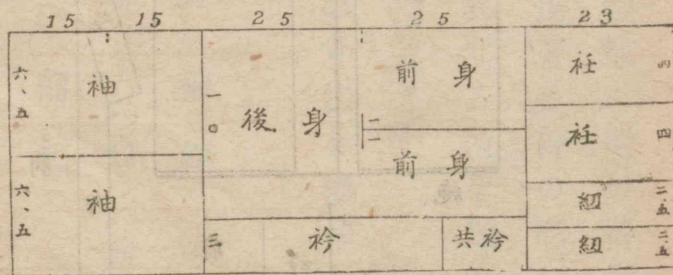 15 15 25 25 23
六、五 袖
六、五 袖
一〇 後身
前身
二
前身
三 衿
共衿
衽 四
衽 四
紐 二、五
紐 二、五